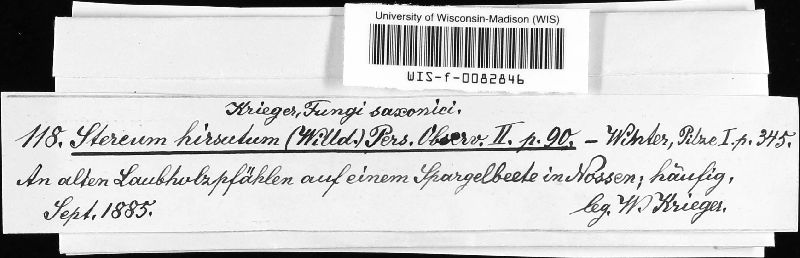 University of Wisconsin-Madison (WIS)
WIS-f-0082846
Krieger, Fungi saxonici.
118. Stereum hirsutum (Willd.) Pers. Observ. II. p. 90. – Winter, Pilze I. p. 345.
An alten Laubholzpfählen auf einem Spargelbeete in Nossen; häufig.
Sept. 1885. leg. W. Krieger.